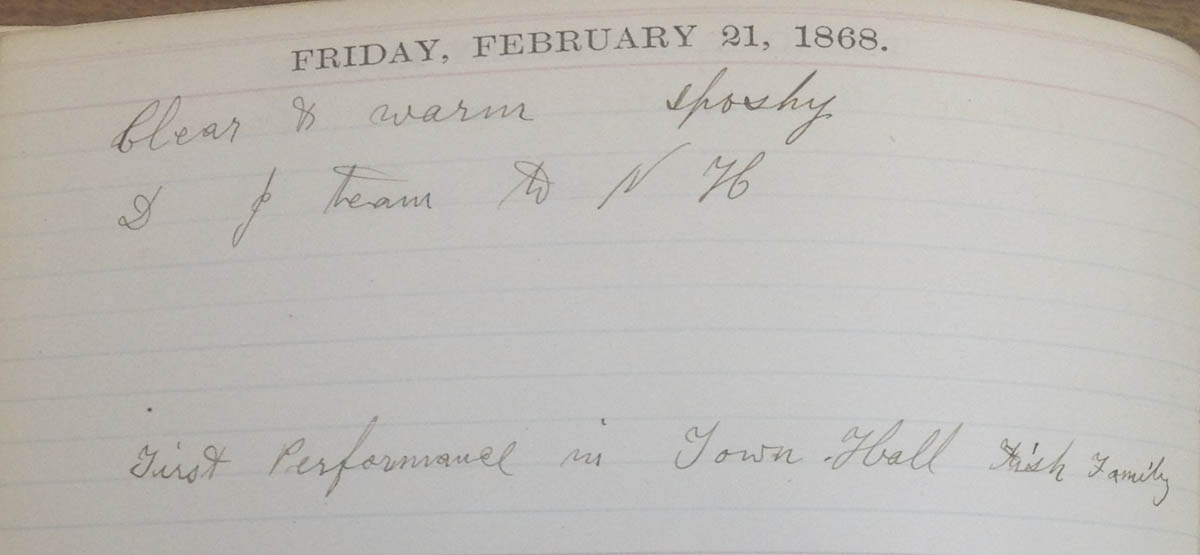 FRIDAY, FEBRUARY 21, 1868.
Clear & warm sposhy
D & team to N H
First Performance in Town Hall Fish Family